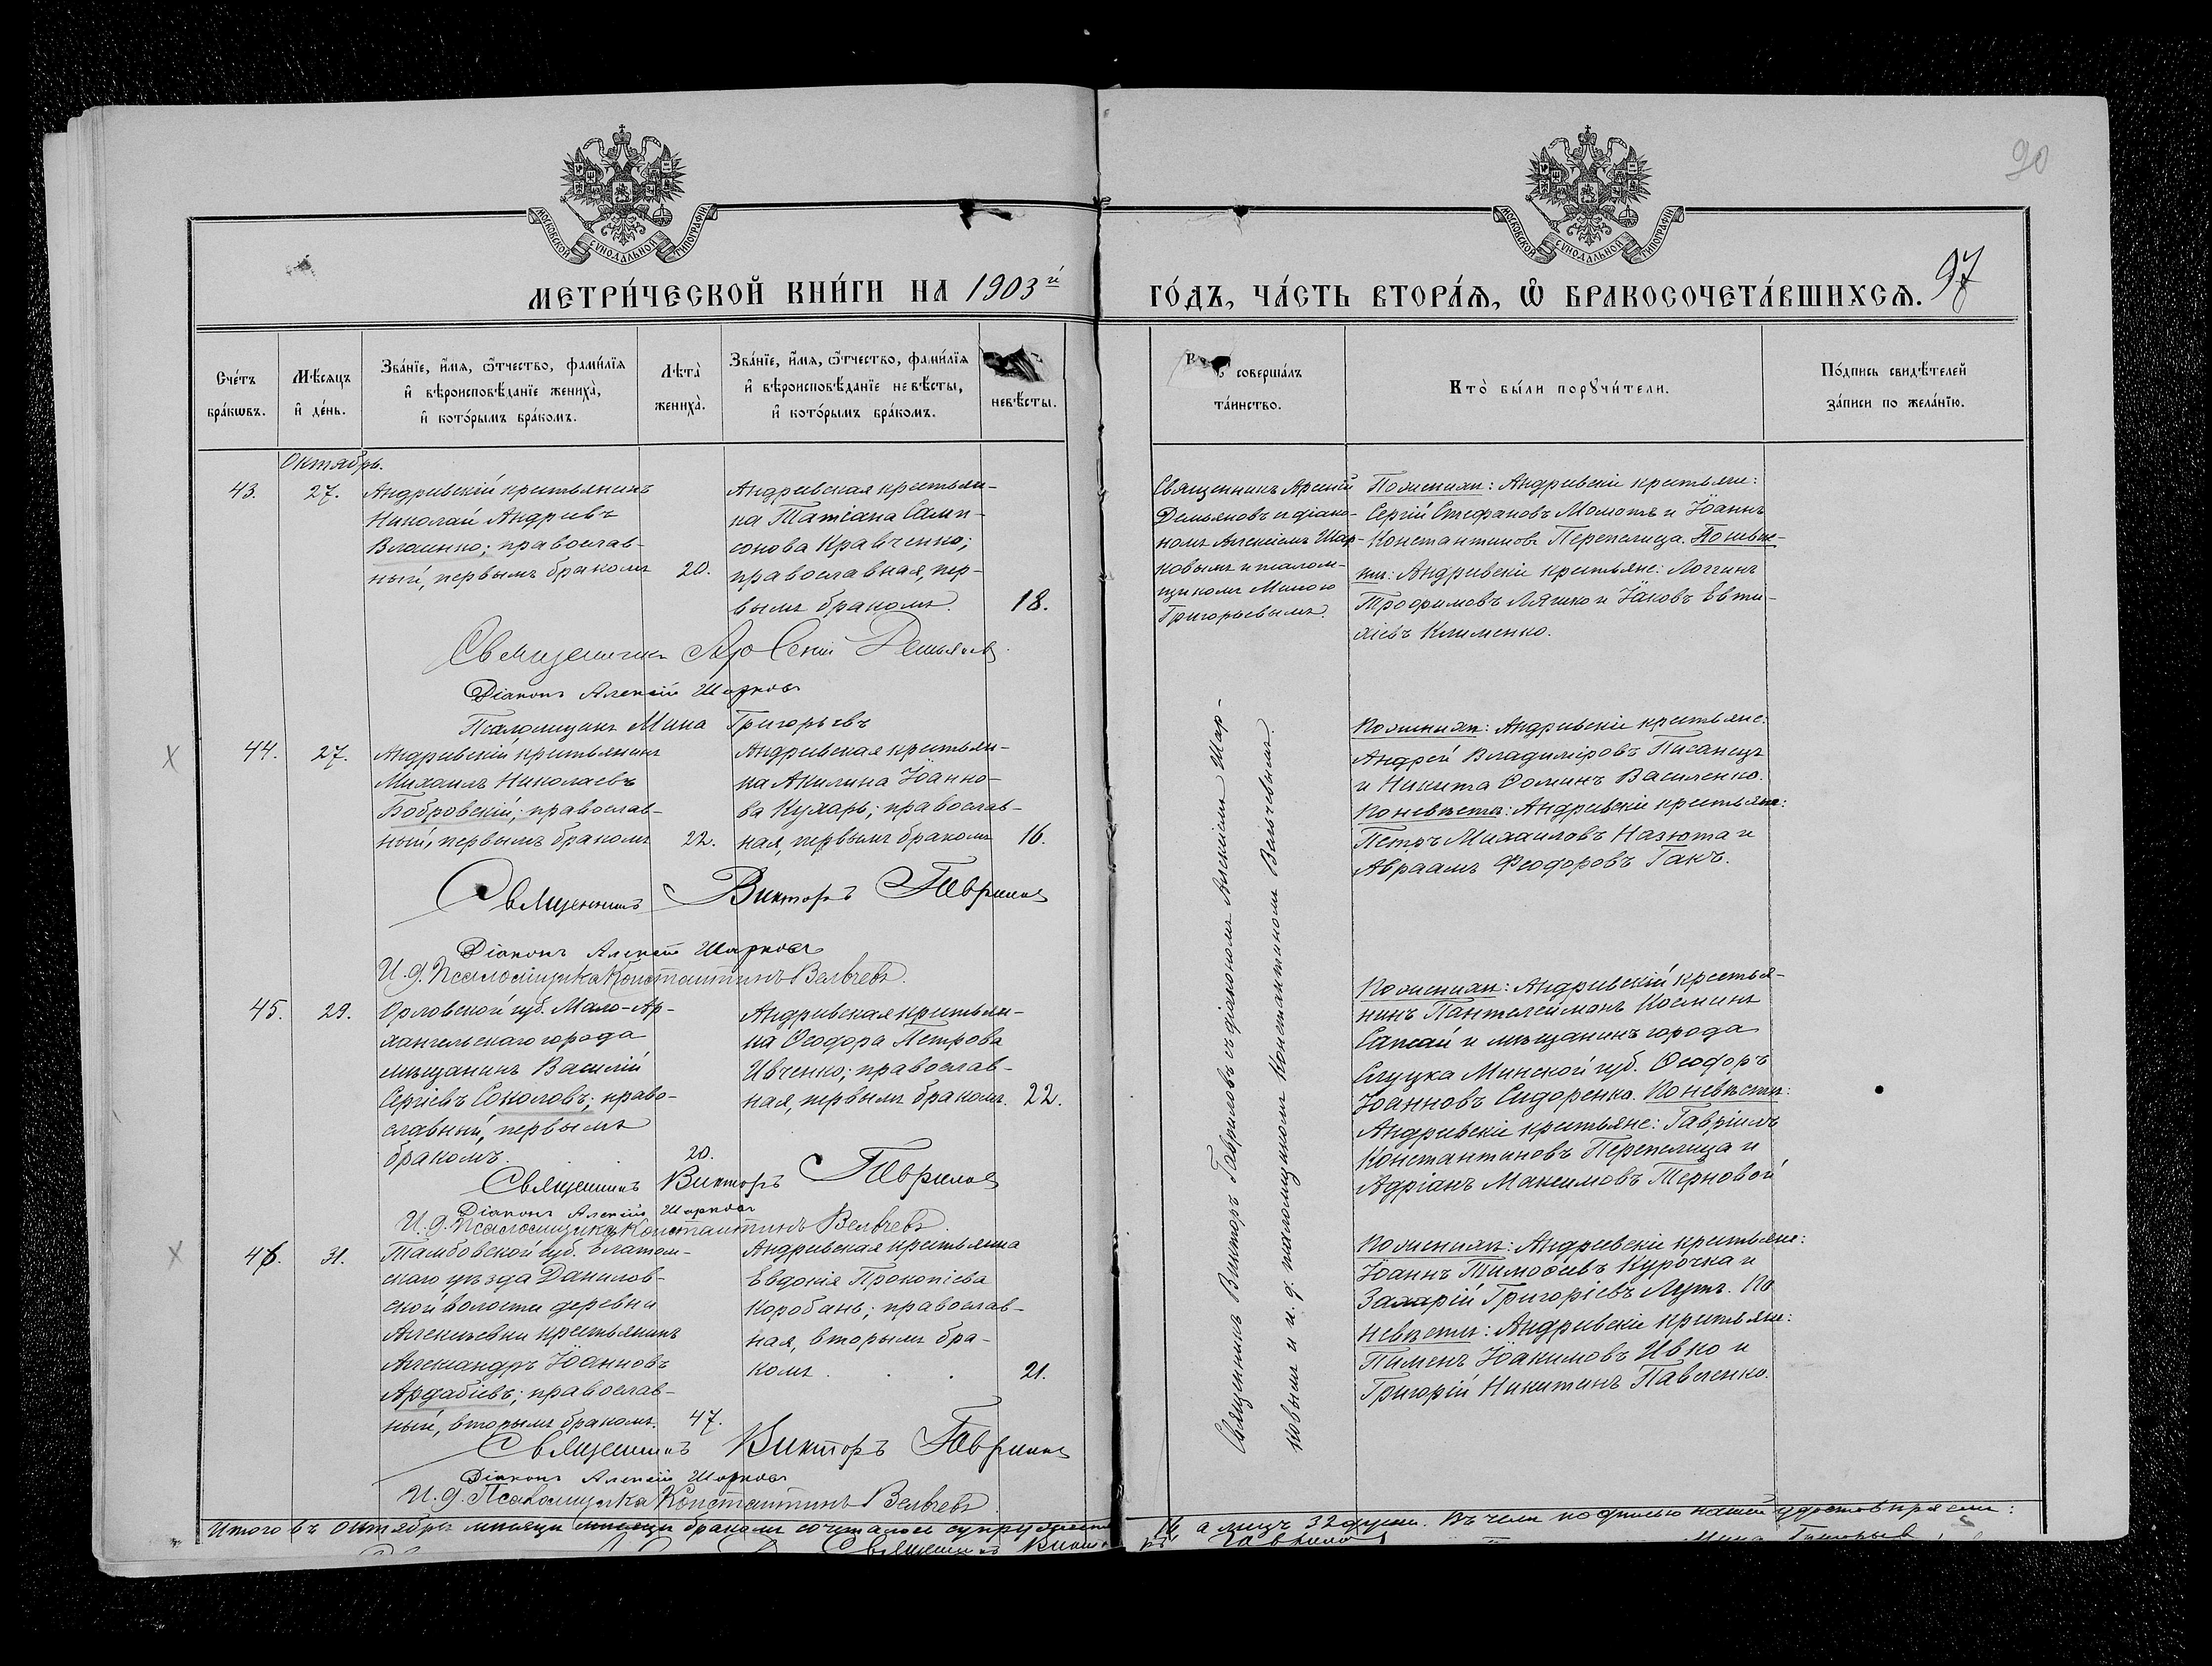 90
МОСКОВСКОЙ СѴНОДАЛЬНОЙ ТИПОГРАФІИ
МОСКОВСКОЙ СѴНОДАЛЬНОЙ ТИПОГРАФІИ
МЕТРИ́ЧЕСКОЙ КНИ́ГИ НА 1903й
ГО́ДЪ, ЧА́СТЬ ВТОРА́Ѧ, Ѽ БРАКОСОЧЕТА́ВШИХСѦ. 97
Сче́тъ бра́кωвъ.
Мѣ́сяцъ и҆ де́нь.
Зва́нїе, и҆́мѧ, ѻ҆́тчество, фами́лїѧ
и҆ вѣроисповѣ́данїе жениха̀,
и҆ кото́рымъ бра́комъ.
Лѣта̀ жениха̀.
Зва́нїе, и҆́мѧ, ѻ҆́тчество, фами́лїѧ
и҆ вѣроисповѣ́данїе невѣ́сты,
и҆ кото́рымъ бра́комъ.
невѣ́сты.
совершáлъ
та́инство.
Кто̀ бы́ли порꙋчи́тели.
По́дпись свидѣ́телей
за́писи по жела́нїю.
Октябрь.
43.
27.
Андреевскій крестьянинъ
Николай Андреевъ
Власенко; православ-
ный, первымъ бракомъ
20.
Андреевская крестьян-
ка Татіана Самп-
сонова Кравченко;
православная, пер-
вымъ бракомъ.
18.
Священникъ Арсеній
Демьяновъ съ діако-
номъ Алексіемъ Шар-
ковымъ и псалом-
щикомъ Миною
Григорьевымъ.
По женихѣ: Андреевскіе крестьяне:
Сергій Стефановъ Момотъ и Іоаннъ
Константиновъ Перепелица. По невѣс-
тѣ: Андреевскіе крестьяне: Логгинъ
Трофимовъ Ляшко и Іаковъ Евти-
хіевъ Клименко.
Священникъ Арсеній Демьяновъ
Діаконъ Алексій Шарковъ
Псаломщикъ Мина Григорьевъ
44.
27.
Андреевскій крестьянинъ
Михаилъ Николаевъ
Бобровскій; православ-
ный, первымъ бракомъ
22.
Андреевская крестьян-
ка Акилина Іоанно-
ва Кухарь; православ-
ная, первымъ бракомъ
16.
По женихѣ: Андреевскіе крестьяне:
Андрей Владиміровъ Писанецъ
и Никита Ѳоминъ Василенко.
По невѣстѣ: Андреевскіе крестьяне:
Петръ Михаиловъ Назюта и
Авраамъ Феодоровъ Ганъ.
Священникъ Викторъ Гавриловъ
Діаконъ Алексій Шарковъ
И. д. Псаломщика Константинъ Вельчевъ.
45.
29.
Орловской губ. Мало-Ар-
хангельскаго города
мѣщанинъ Василій
Сергіевъ Соколовъ; право-
славный, первымъ
бракомъ.
20.
Андреевская крестьян-
ка Ѳеодора Петрова
Ивченко; православ-
ная, первымъ бракомъ.
22.
По женихѣ: Андреевскій крестья-
нинъ Пантелеймонъ Косминъ
Сапсай и мѣщанинъ города
Слуцка Минской губ. Ѳеодоръ
Іоанновъ Сидоренко. По невѣстѣ:
Андреевскіе крестьяне: Гавріилъ
Константиновъ Перепелица и
Адріанъ Максимовъ Терновой
Священникъ Викторъ Гавриловъ
Діаконъ Алексій Шарковъ
И. д. Псаломщика Константинъ Вельчевъ.
46.
31.
Тамбовской губ. Елатом-
скаго уѣзда Данилов-
ской волости деревни
Алексѣевки крестьянинъ
Александръ Іоанновъ
Ардабіевъ; православ-
ный, вторымъ бракомъ.
47.
Андреевская крестьянка
Евдокія Прокопіева
Коробань; православ-
ная, вторымъ бра-
комъ
21.
По женихѣ: Андреевскіе крестьяне:
Іоаннъ Тимоѳеевъ Курочка и
Захарій Григоріевъ Лутъ. По
невѣстѣ: Андреевскіе крестьяне:
Пименъ Іоакимовъ Ивко и
Григорій Никитинъ Павленко.
Священникъ Викторъ Гавриловъ
Діаконъ Алексій Шарковъ
И. д. Псаломщика Константинъ Вельчевъ.
Священникъ Викторъ Гавриловъ съ діакономъ Алексіемъ Шар-
ковымъ и и. д. псаломщикомъ Константиномъ Вельчевымъ.
Итого въ октябрѣ мѣсяцѣ бракомъ сочеталось супружествъ 16, а лицъ 32 души. Въ чемъ подписью нашей удостовѣряемъ: